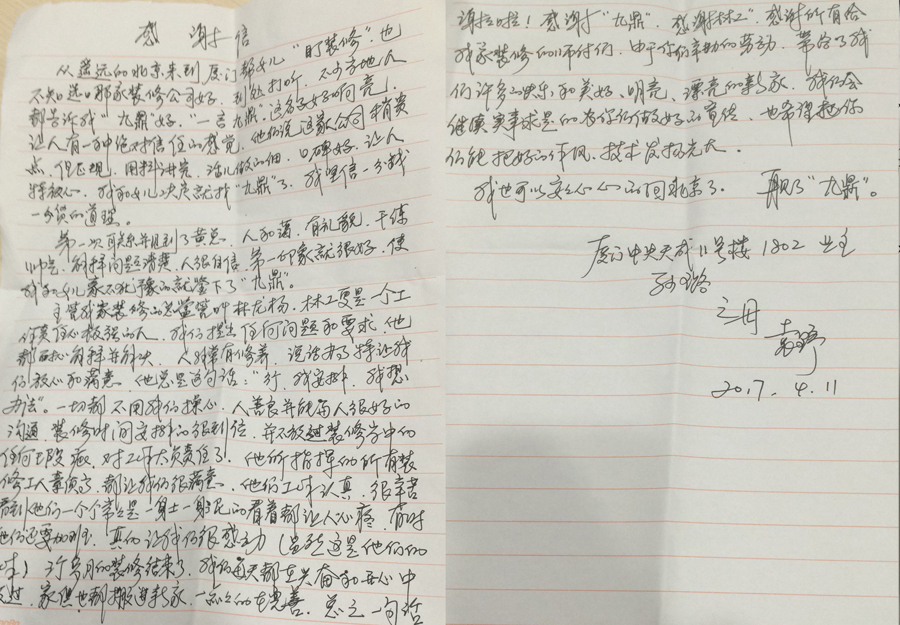 感谢信
从遥远的北京来到厦门帮女儿“盯装修”也
不知道选哪家装修公司好。到处打听,不少当地人
都告诉我“九鼎”好。“一言九鼎”这名字好响亮,
让人有一种绝对信任的感觉。他们说这家公司稍贵
点,但正规,用料讲究,活儿做的细,口碑好,让人
特放心。我和女儿决定就找“九鼎”了。我坚信一分钱
一分货的道理。
第一次联系并见到了黄总,人和蔼,有礼貌,干练
帅气,解释问题清楚,人很自信,第一印象就很好。使
我和女儿毫不犹豫的就签下了“九鼎”。
主管我家装修的总监管叫林龙杨,林工更是一个工
作责任心极强的人。我们提出任何问题和要求他
都耐心解释并解决。人非常有修养,说话办事特让我
们放心和满意。他总是这句话:“行,我安排,我想
办法”。一切都不用我们操心。人善良并能与人很好的
沟通,装修时间安排的很到位,并不放过装修当中的
任何瑕疵,对工作太负责任了!他所指挥的所有装
修工人素质高,都让我们很满意。他们工作认真,很辛苦
看到他们一个个常常是一身土一身泥的看着都让人心疼,有时
他们还要加班,真的让我们很感动(虽然这是他们的
工作)3个月的装修结束了,我们每天都在兴奋和开心中
度过,家俱也都搬进新家,一点点的在完善。总之一句话
谢谢啦!感谢“九鼎”,感谢林工,感谢所有给
我家装修的师付们,由于你们辛勤的劳动,带给了我
们许多的快乐和美好、明亮、漂亮的新家。我们会
继续实事求是的为你们做好的宣传,也希望把你
们能把好的作风、技术发扬光大。
我也可以安安心心的回北京了。再见了“九鼎”。
厦门中央天成11号楼1802业主
孙璐
之母
袁婷
2017.4.11